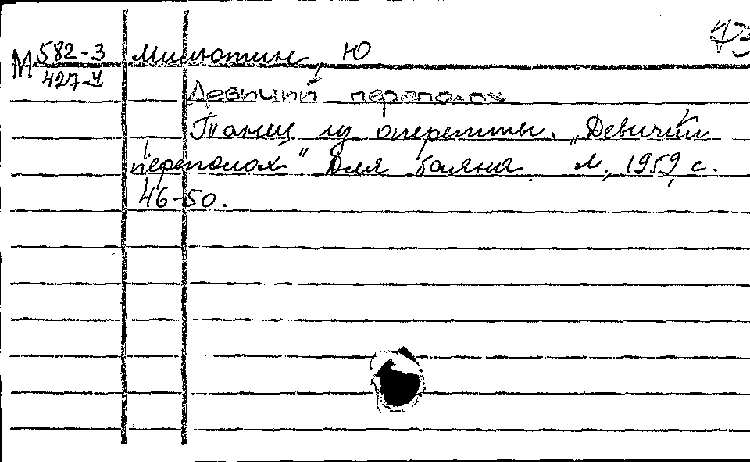 М 582-3 Милютин, Ю
427-4
Девичий переполох
Танец из оперетты. „Девичий
переполох" Для баяна. М., 1959, с.
46-50.